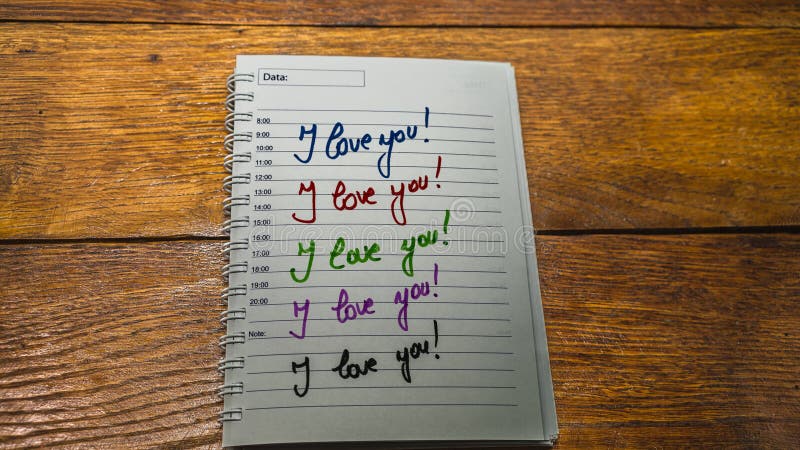 Data:
8:00
9:00
I love you!
10:00
11:00
12:00
13:00
I love you!
14:00
15:00
16:00
17:00
I love you!
18:00
19:00
20:00
I love you!
Note:
I love you!
dreamstime